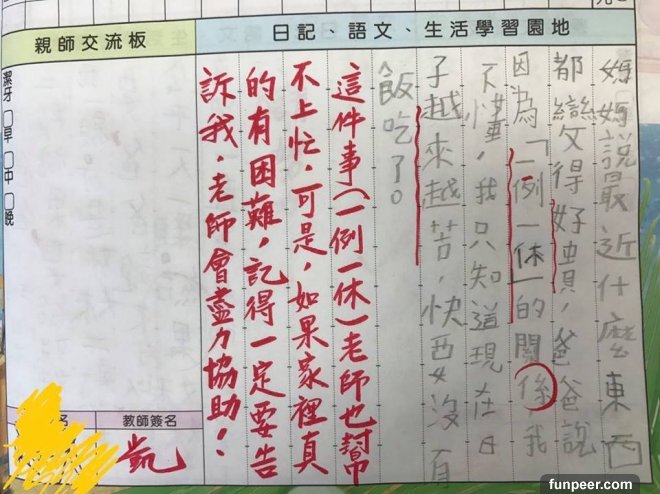 親師交流板
日記、語文、生活學習園地
媽媽說最近什麼東西
都變得好貴，爸爸說
因為「一例一休」的關係，我
不懂，我只知道現在日
子越來越苦，快要沒有
飯吃了。
這件事(一例一休)老師也幫
不上忙，可是，如果家裡真
的有困難，記得一定要告
訴我，老師會盡力協助！
潔牙□早□中□晚
名
教師簽名
凱
funpeer.com